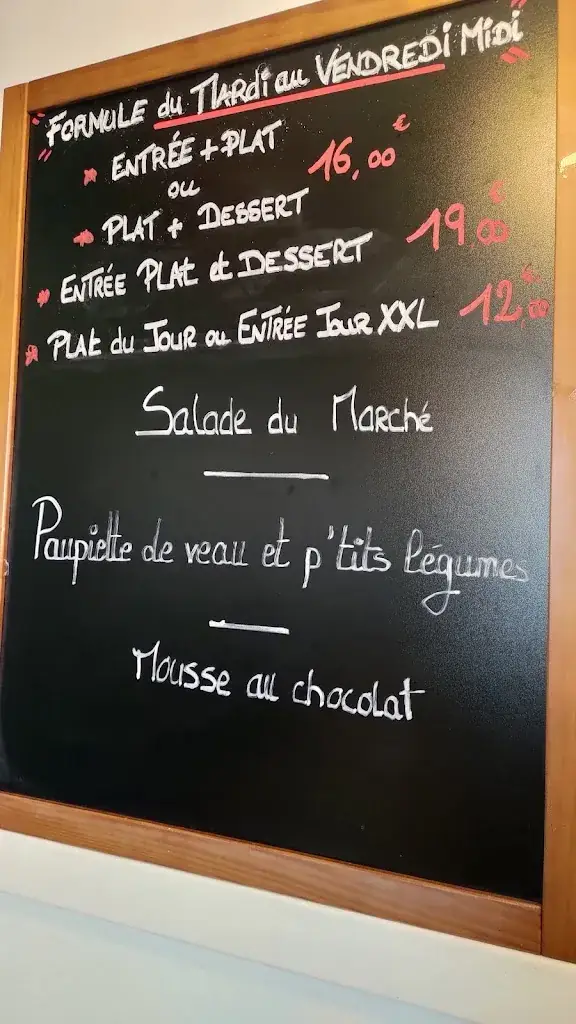 "FORMULE du MARdi au VENDREDi Midi"
ENTRÉE + PLAT 16,00€
ou
PLAT + DESSERT
ENTRÉE PLAt et DESSERT 19,00€
PLAt du Jour ou ENTRÉE Jour XXL 12,00€
Salade du Marché
Paupiette de veau et p'tits légumes
Mousse au chocolat